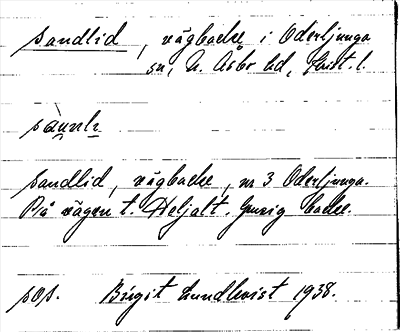 Sandlid, vägbacke i Oderljunga
sn, N. Åsbo hd, Krist. l.
Sandlid, vägbacke, nr 3 Oderljunga.
På vägen t. Heljalt. Grusig backe.
sos. Birgit Lundkvist 1938.